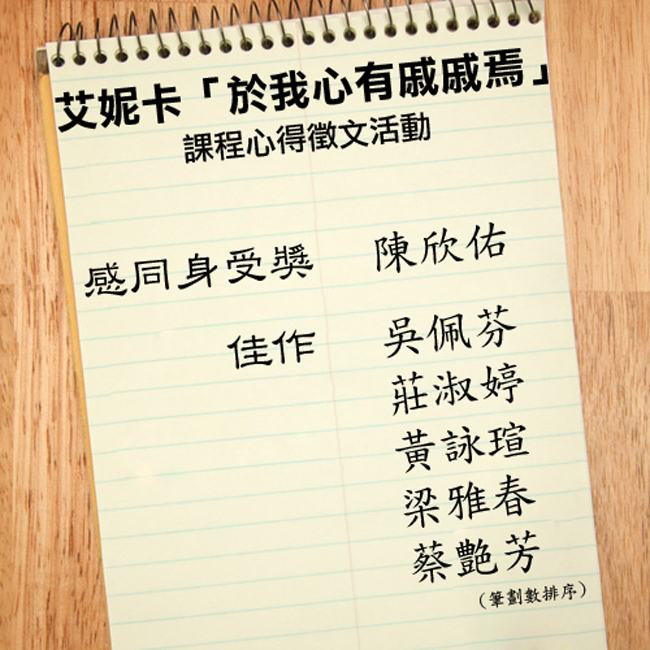 艾妮卡「於我心有戚戚焉」
課程心得徵文活動
感同身受獎 陳欣佑
佳作 吳佩芬
莊淑婷
黃詠瑄
梁雅春
蔡艷芳
（筆劃數排序）